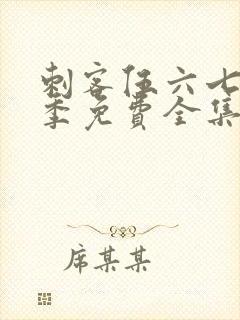 刺客伍六七
季免費全集
席某某